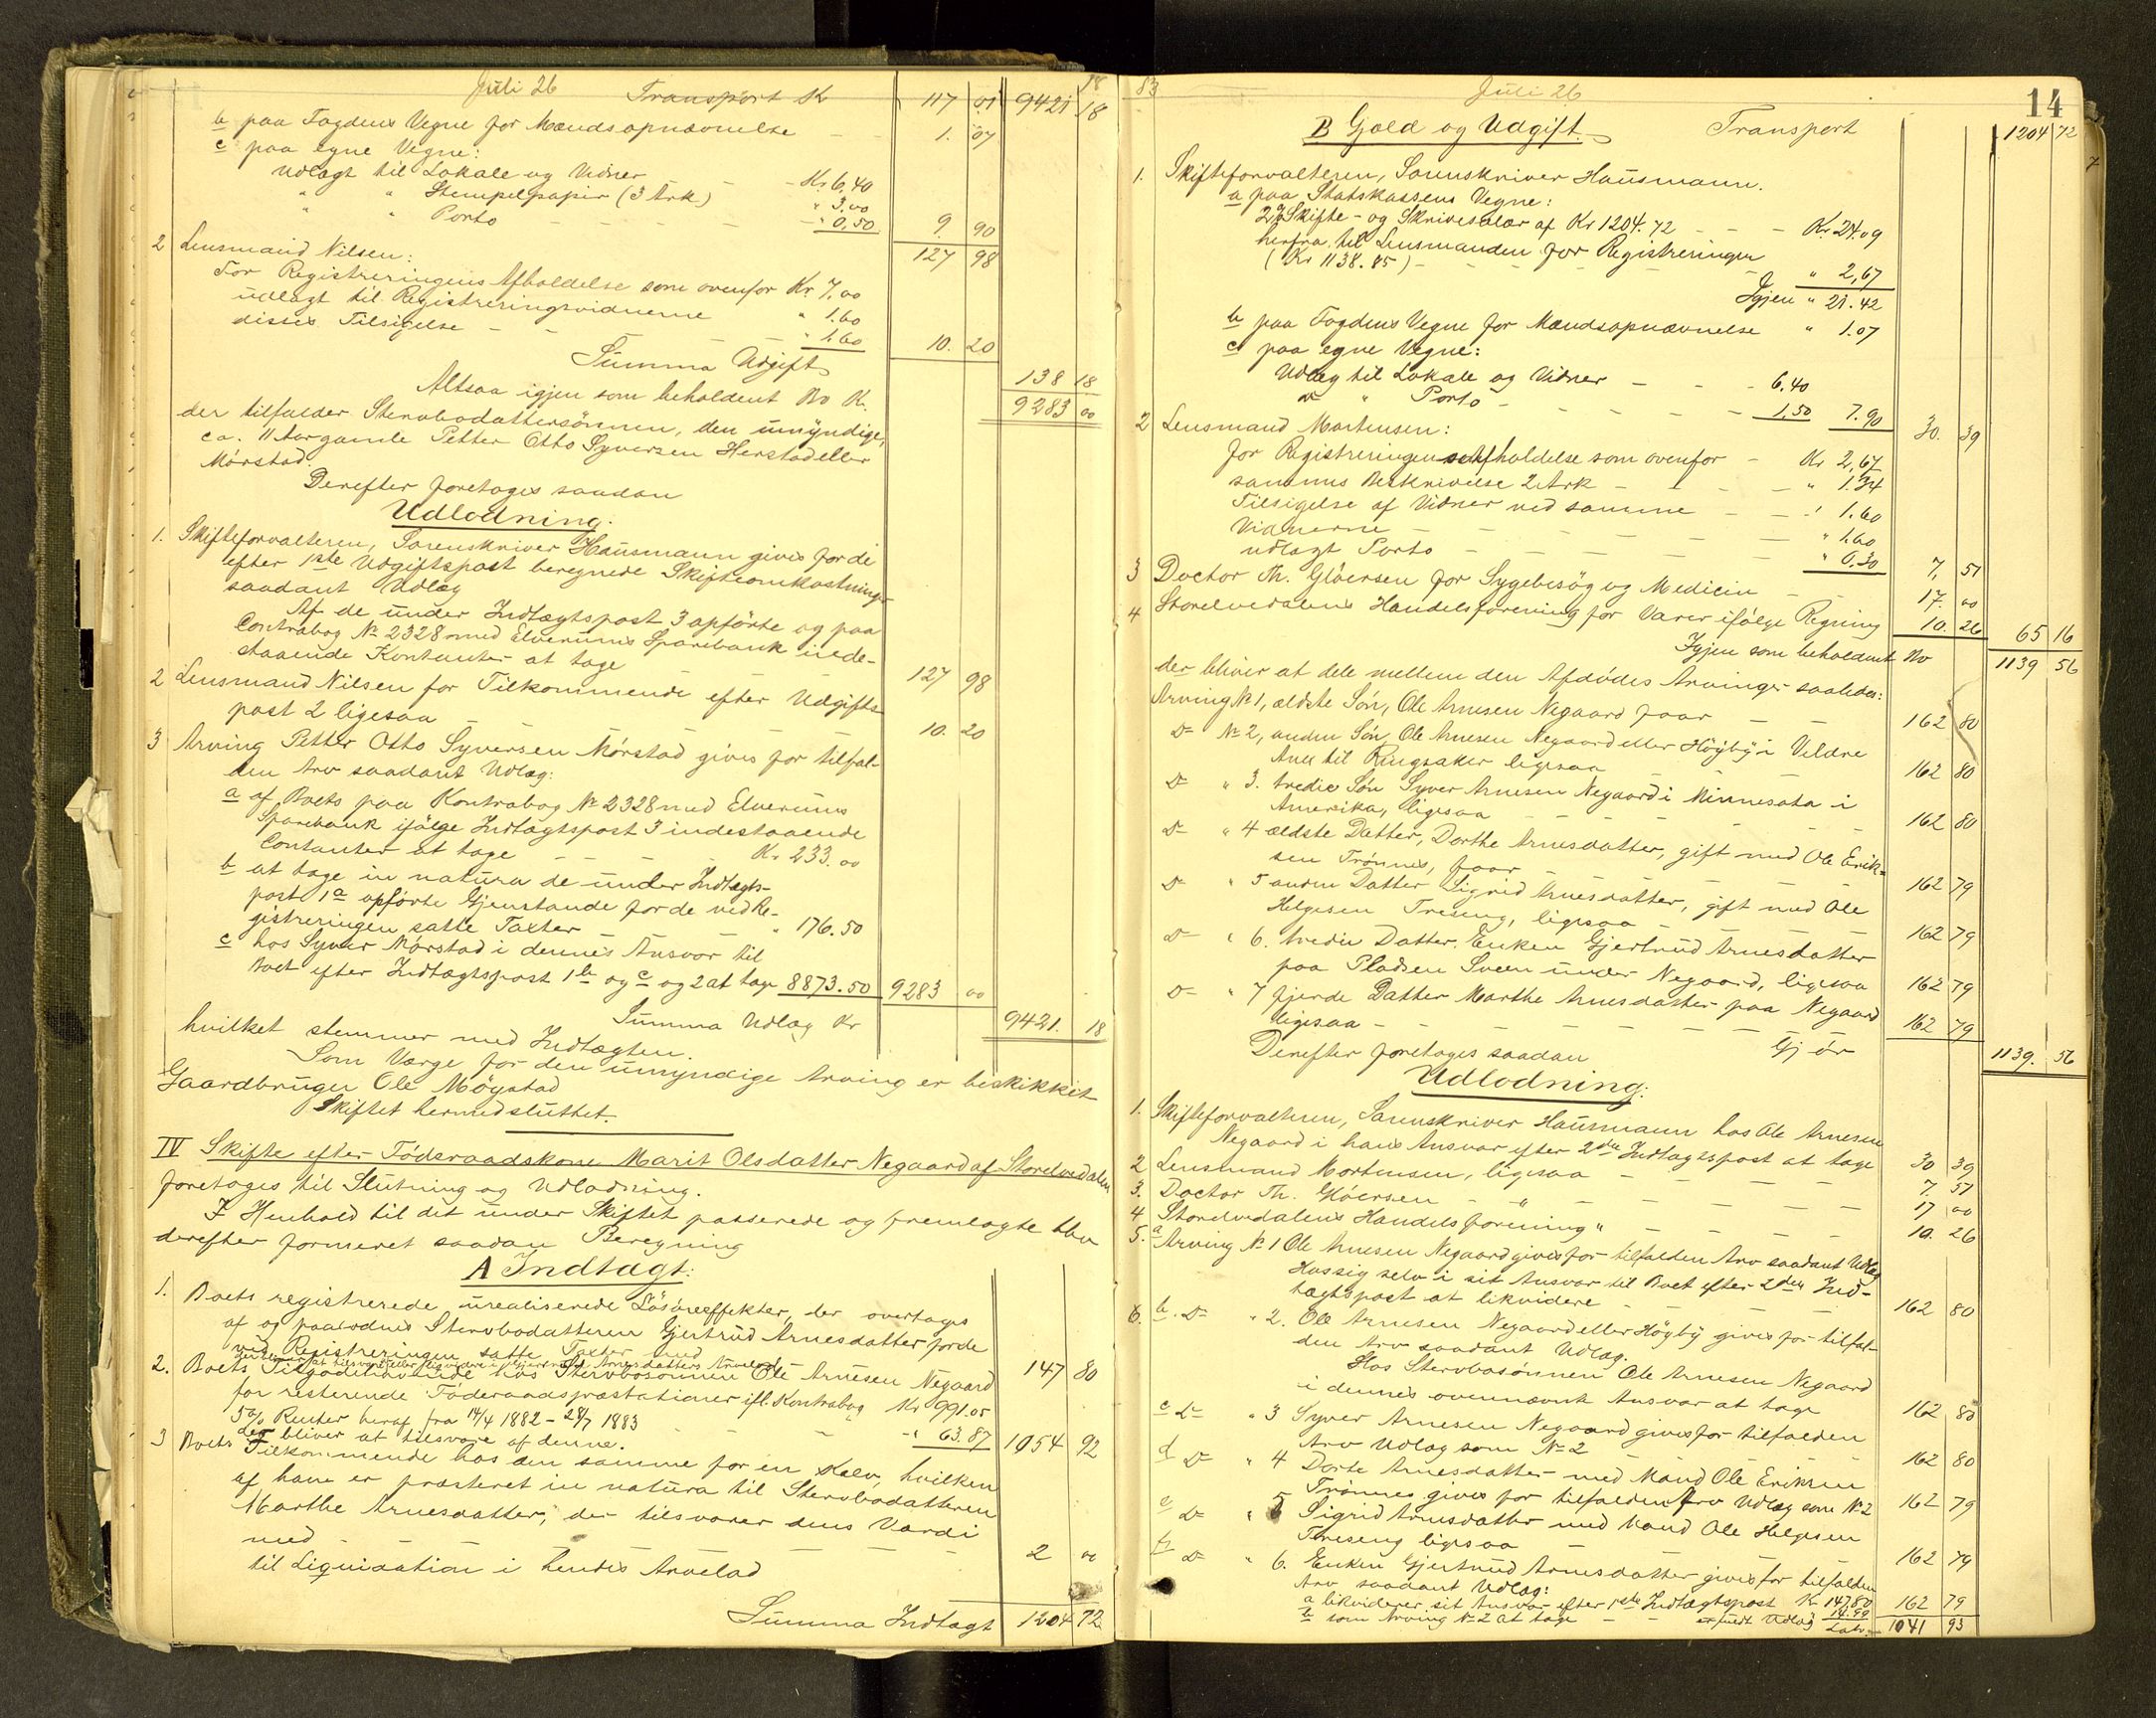 Juli 26
18
Transport Kr 117 01 9421 18
b paa Fogdens Vegne for Mændsopnævnelse 1. 07
c paa egne Vegne:
Udlagt til Lokale og Vidner Kr 6.40
" " Stempelpapir (3 Ark) " 3.00
" " Porto " 0,50 9. 90
127 98
2 Lensmand Nilsen:
For Registreringens Afholdelse som ovenfor Kr 7,00
udlagt til Registreringsvidnerne " 1.60
disses Tilsigelse " 1.60 10. 20
Summa Udgift 138 18
Altsaa igjen som beholdent Bo Kr. 9283 00
der tilfalder Stervbodattersönnen, den umyndige,
ca. 11 Aar gamle Petter Otto Syversen Herstad eller
Mörstad.
Derefter foretages saadan
Udlodning.
1. Skifteforvalteren, Sorenskriver Hausmann gives for de
efter 1ste Udgiftspost beregnede Skifteomkostninger
saadant Udlæg
Af de under Indtægtspost 3 opförte og paa
Contrabog No 2328 med Elverums Sparebank inde-
staaende Kontanter at tage 127 98
2 Lensmand Nilsen for Tilkommende efter Udgifts-
post 2 ligesaa 10. 20
3 Arving Petter Otto Syversen Mörstad gives for tilfal-
den Arv saadant Udlæg:
a af Boets paa Kontrabog No 2328 med Elverums
Sparebank ifölge Indtægtspost 3 indestaaende
Contanter at tage Kr 233.00
b at tage in natura de under Indtægts-
post 1a opförte Gjenstande for de ved Re-
gistreringen satte Taxter " 176.50
c hos Syver Mörstad i dennes Ansvar til
Boet efter Indtægtspost 1b og c og 2 at tage 8873.50 9283 00
Summa Udlæg Kr 9421. 18
hvilket stemmer med Indtægten.
Som Værge for den umyndige Arving er beskikket
Gaardbruger Ole Möystad
Skiftet hermed sluttet.
IV Skifte efter Föderaadskone Marit Olsdatter Negaard af Storelvedalen
foretages til Slutning og Udlodning.
I Henhold til det under Skiftet passerede og fremlagte blev
derefter formeret saadan Beregning
A Indtægt:
1. Boets registrerede urealiserede Lösöreeffekter, der overtages
af og paalodnes Stervbodatteren Gjertrud Arnesdatter for de
ved Registreringen satte Taxter med 147 80
2. Boets Tilgodehavende hos Stervbosönnen Ole Arnesen Negaard
for resterende Föderaadspræstationer ifl. Kontrabog Kr 991.05
5% Renter heraf fra 14/4 1882 - 28/7 1883 " 63.87 1054 92
der bliver at tilsvare af denne.
3 Boets Tilkommende hos den samme for en Kalv, hvilken
af ham er præsteret in natura til Stervbodatteren
Marthe Arnesdatter, der tilsvarer dens Værdi
med 2 00
til Liquidation i hendes Arvelod
Summa Indtægt 1204 72
83
Juli 26
14
B Gjæld og Udgift. Transport 1204 72
1. Skifteforvalteren, Sorenskriver Hausmann.
a paa Statskassens Vegne:
2% Skifte- og Skrivesalær af Kr 1204.72 Kr. 24.09
herfra til Lensmanden for Registreringen
(Kr 1138.85) " 2,67
Igjen " 21.42
b paa Fogdens Vegne for Mændsopnævnelse " 1.07
c paa egne Vegne:
Udlæg til Lokale og Vidner 6.40
Do " Porto 1,50 7.90 30. 39
2 Lensmand Mortensen:
for Registreringens Afholdelse som ovenfor Kr 2,67
sammes Beskrivelse 2 Ark " 1.34
Tilsigelse af Vidner ved samme " 1.60
Vidnerne " 1.60
udlagt Porto " 0.30 7, 51
3 Doctor Th. Glöersen for Sygebesög og Medicin 17. 00
4 Storelvedalens Handelsforening for Varer ifölge Regning 10. 26 65 16
Igjen som beholdent Bo 1139 56
der bliver at dele mellem den Afdödes Arvinger saaledes:
Arving No 1, ældste Sön, Ole Arnesen Negaard faar 162 80
Do No 2, anden Sön, Ole Arnesen Negaard eller Höyby i Veldre
Anex til Ringsaker ligesaa 162 80
Do " 3. tredie Sön Syver Arnesen Negaard i Minnesota i
Amerika, ligesaa 162 80
Do " 4 ældste Datter, Dorthe Arnesdatter, gift med Ole Erik-
sen Trönnes, faar 162 79
Do " 5 anden Datter Sigrid Arnesdatter, gift med Ole
Helgesen Treseng, ligesaa 162 79
Do " 6. tredie Datter Enken Gjertrud Arnesdatter
paa Pladsen Sveen under Negaard, ligesaa 162 79
Do " 7 fjerde Datter Marthe Arnesdatter paa Negaard
ligesaa 162 79
Gjör 1139. 56
Derefter foretages saadan
Udlodning:
1. Skifteforvalteren, Sorenskriver Hausmann hos Ole Arnesen
Negaard i hans Ansvar efter 2den Indtægtspost at tage 30 39
2 Lensmand Mortensen, ligesaa 7. 51
3. Doctor Th. Glöersen " 17 00
4 Storelvedalens Handelsforening " 10. 26
5. a Arving No 1 Ole Arnesen Negaard gives for tilfalden Arv saadant Udlæg
Hos sig selv i sit Ansvar til Boet efter 2den Ind-
tægtspost at likvidere 162 80
6. b. Do " 2. Ole Arnesen Negaard eller Höyby gives for tilfal-
den Arv saadant Udlæg.
Hos Stervbosönnen Ole Arnesen Negaard
i dennes ovennævnte Ansvar at tage 162 80
c Do " 3 Syver Arnesen Negaard gives for tilfalden
Arv Udlæg som No 2 162 80
d Do " 4 Dorte Arnesdatter med Mand Ole Eriksen
Trönnes gives for tilfalden Arv Udlæg som No 2 162 79
e Do " 5 Sigrid Arnesdatter med Mand Ole Helgesen
Treseng ligesaa 162 79
f Do " 6. Enken Gjertrud Arnesdatter gives for tilfalden
Arv saadant Udlæg:
a likviderer sit Ansvar efter 1ste Indtægtspost Kr 147.80
b som Arving No 2 at tage 14.99 162 79
Udlæg Latr. 1041 93